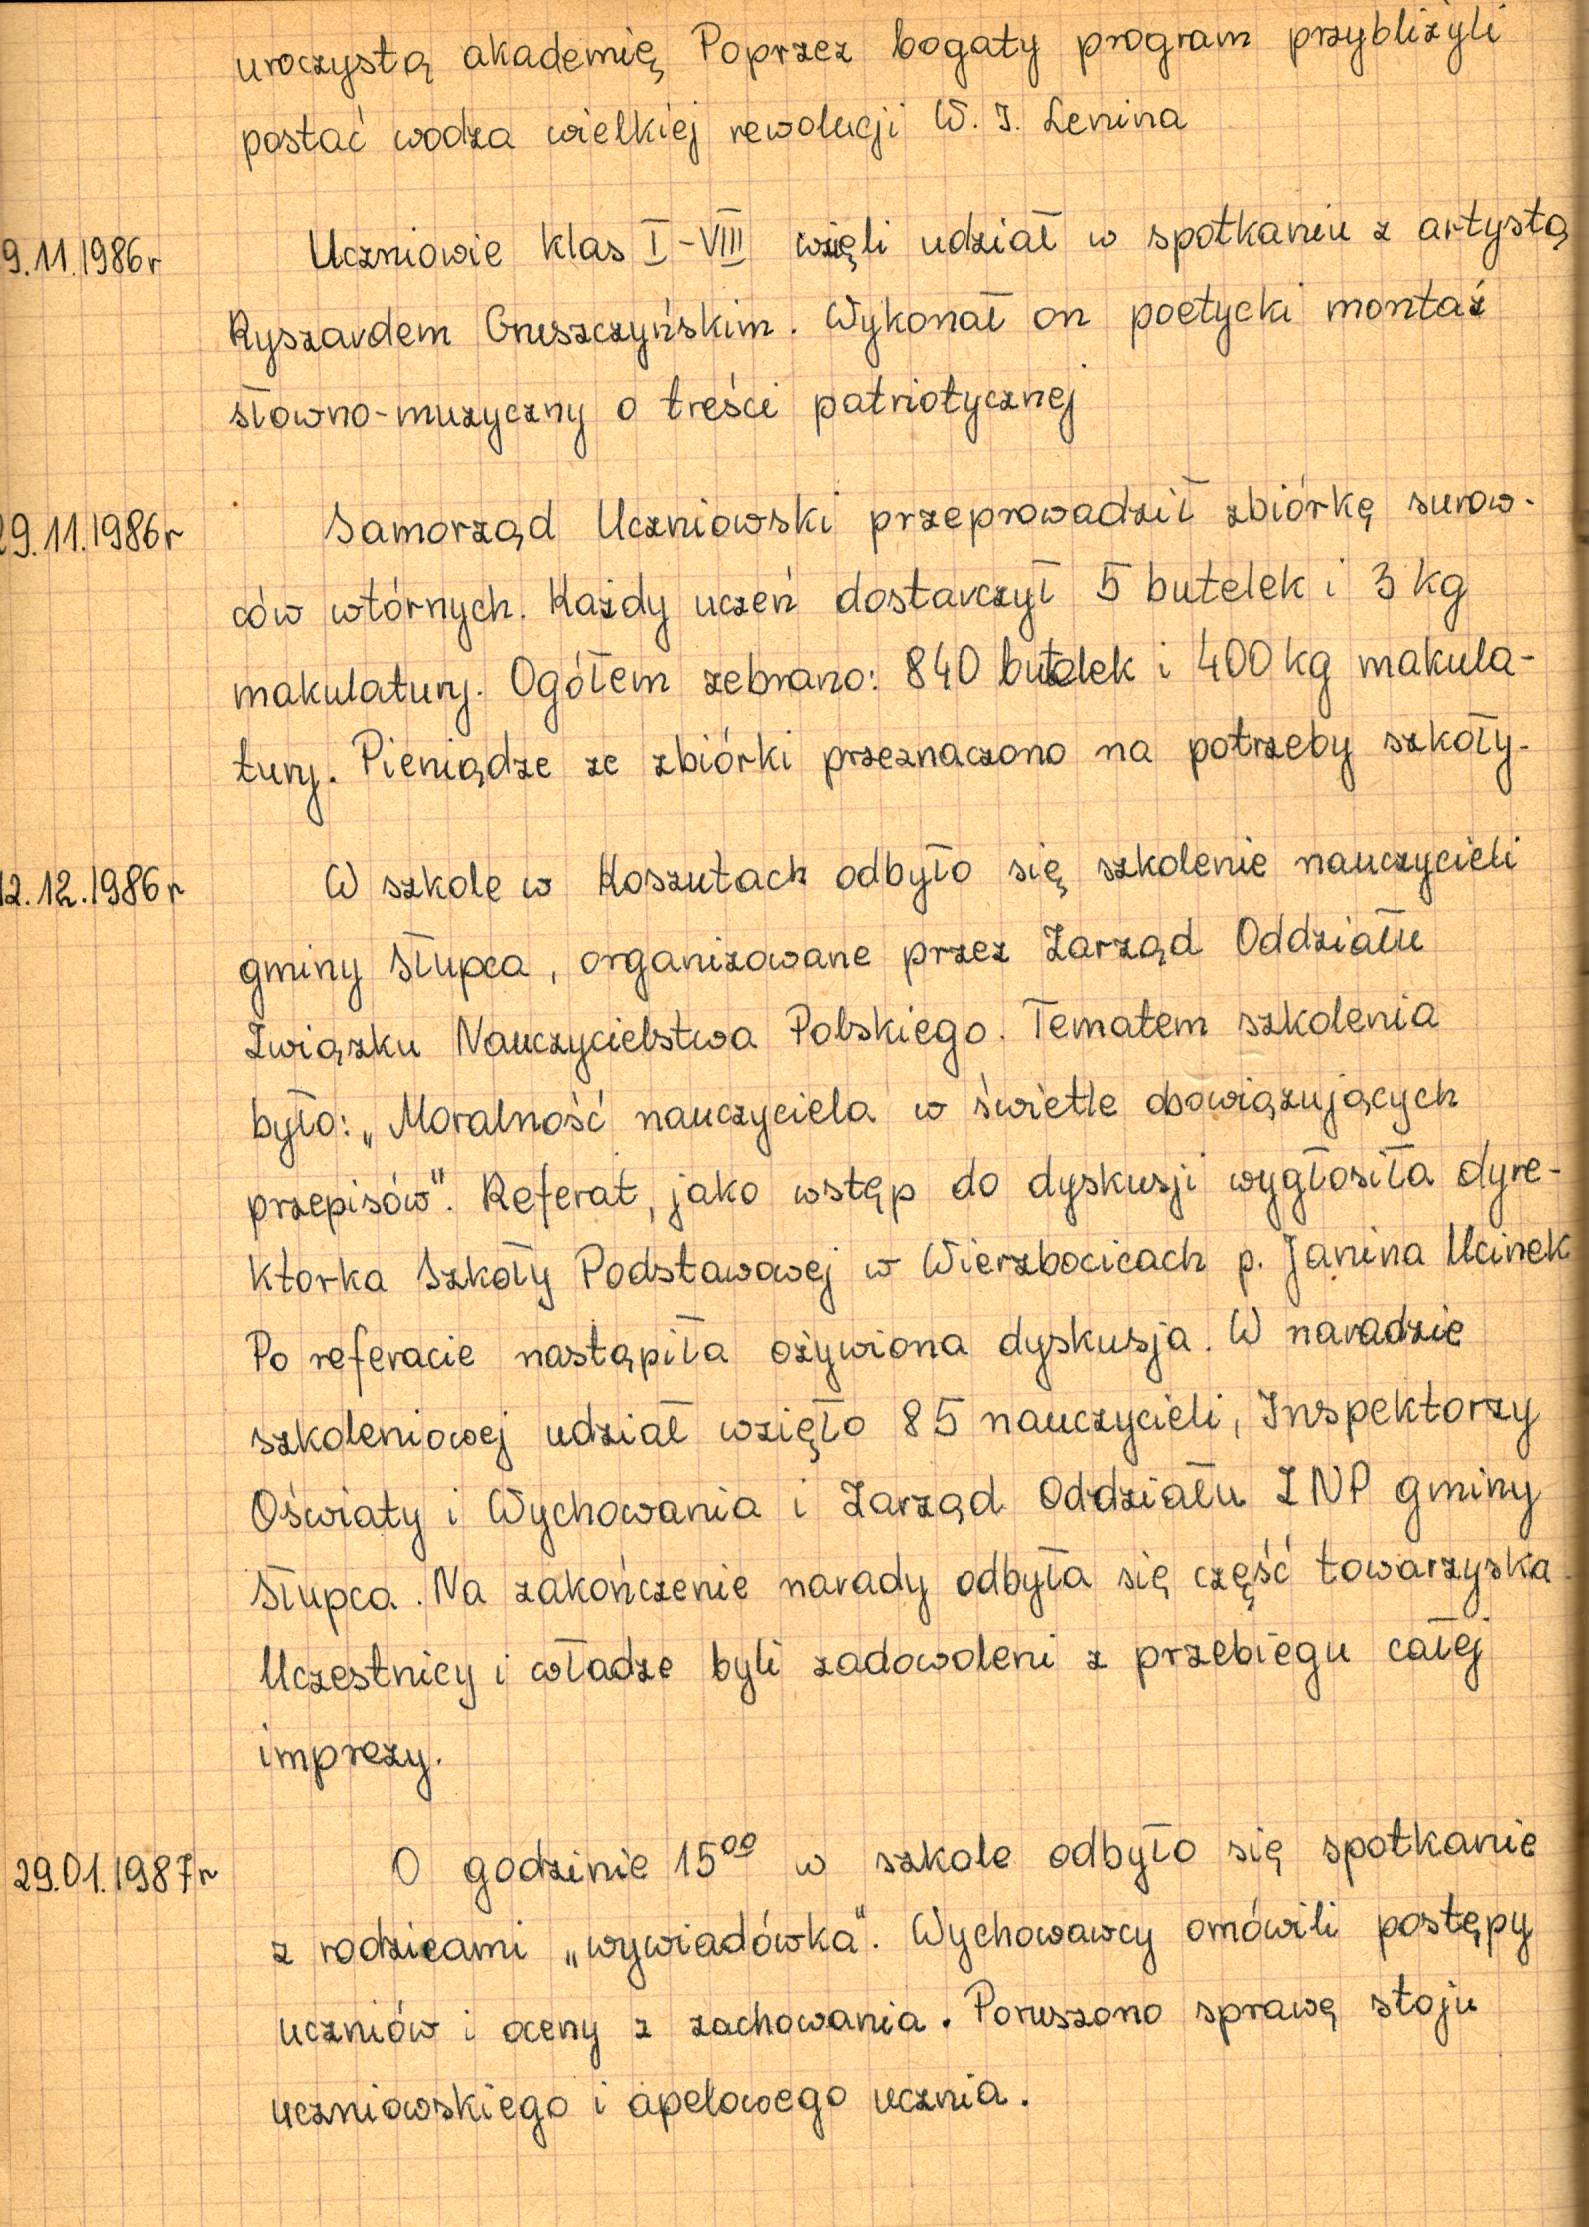 uroczystą akademię. Poprzez bogaty program przybliżyli
postać wodza wielkiej rewolucji W. I. Lenina
9.11.1986r Uczniowie klas I-VIII wzięli udział w spotkaniu z artystą
Ryszardem Gruszczyńskim. Wykonał on poetycki montaż
słowno-muzyczny o treści patriotycznej
29.11.1986r Samorząd Uczniowski przeprowadził zbiórkę surow-
ców wtórnych. Każdy uczeń dostarczył 5 butelek i 3 kg
makulatury. Ogółem zebrano: 840 butelek i 400 kg makula-
tury. Pieniądze ze zbiórki przeznaczono na potrzeby szkoły.
12.12.1986r W szkole w Koszutach odbyło się szkolenie nauczycieli
gminy Słupca, organizowane przez Zarząd Oddziału
Związku Nauczycielstwa Polskiego. Tematem szkolenia
było: „Moralność nauczyciela w świetle obowiązujących
przepisów". Referat, jako wstęp do dyskusji wygłosiła dyre-
ktorka Szkoły Podstawowej w Wierzbocicach p. Janina Ucinek
Po referacie nastąpiła ożywiona dyskusja. W naradzie
szkoleniowej udział wzięło 85 nauczycieli, Inspektorzy
Oświaty i Wychowania i Zarząd Oddziału ZNP gminy
Słupca. Na zakończenie narady odbyła się część towarzyska.
Uczestnicy i władze byli zadowoleni z przebiegu całej
imprezy.
29.01.1987r O godzinie 15⁰⁰ w szkole odbyło się spotkanie
z rodzicami „wywiadówka". Wychowawcy omówili postępy
uczniów i oceny z zachowania. Poruszono sprawę stoju
uczniowskiego i apelowego ucznia.